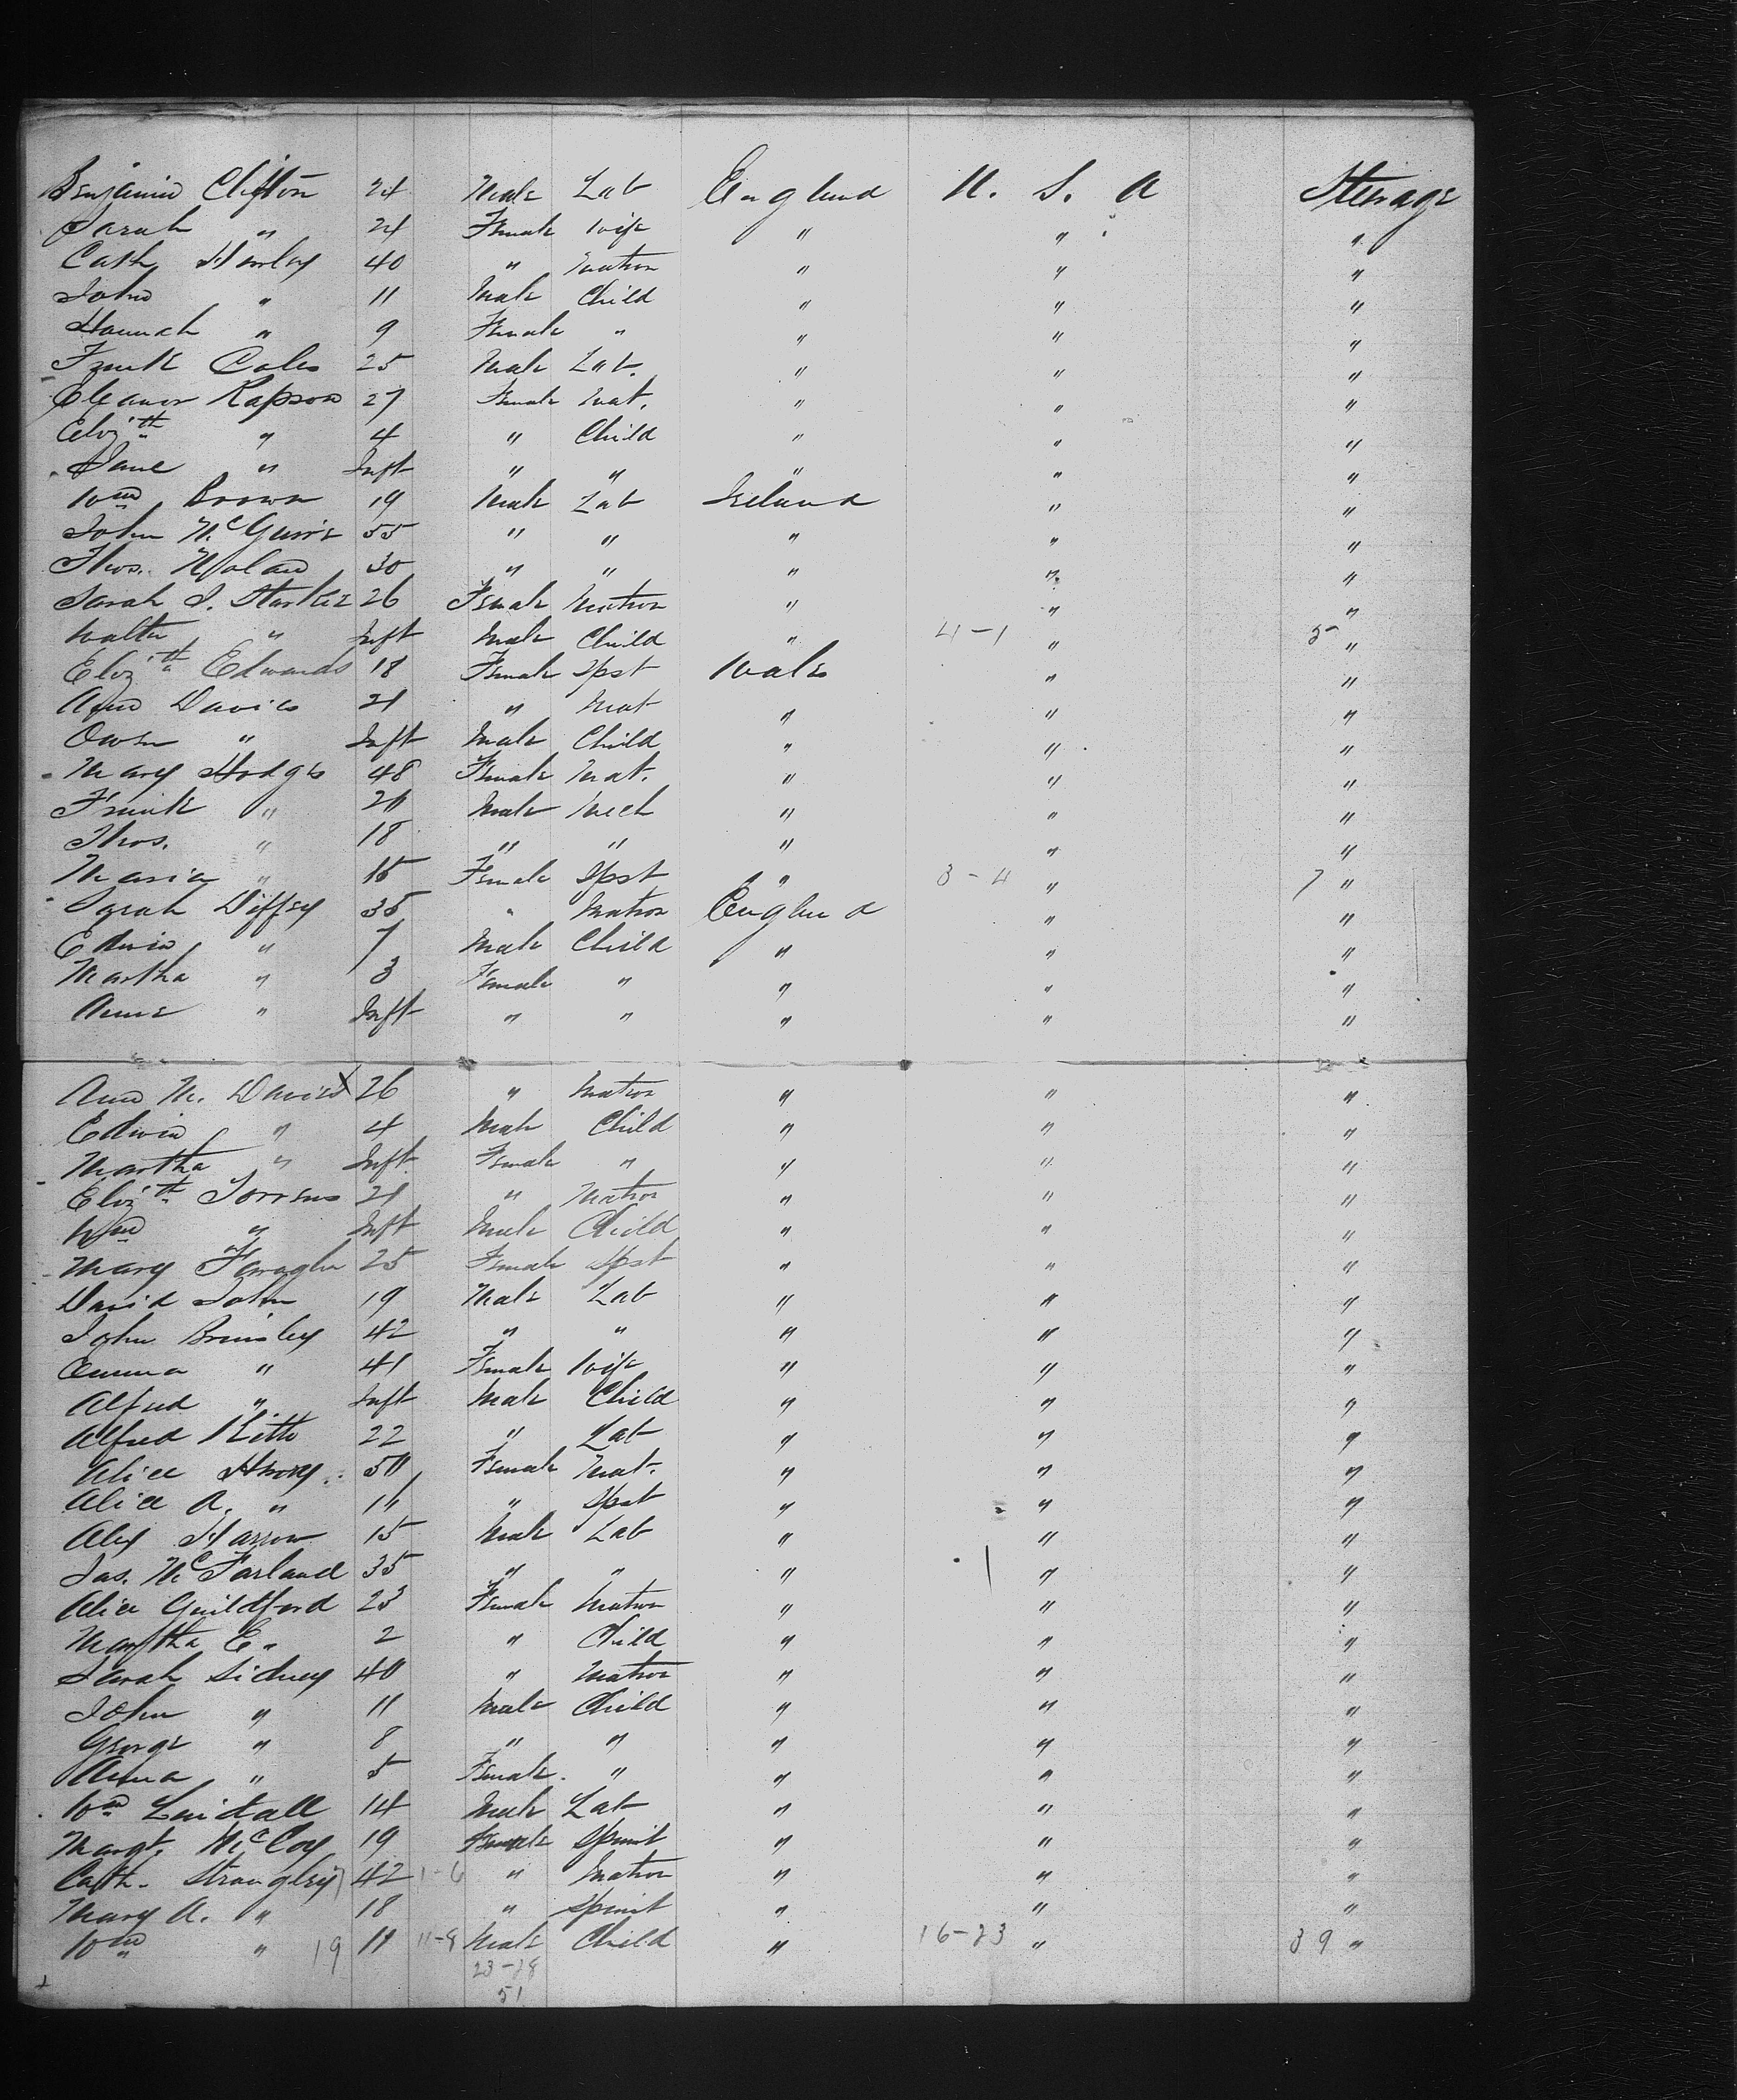 Benjamin Clifton 24 Male Lab England U. S. A Steerage
Sarah " 24 Female Wife " " "
Cath Hanley 40 " Matron " " "
John " 11 Male Child " " "
Hannah " 9 Female " " " "
Frank Coles 25 Male Lab. " " "
Eleanor Rapson 27 Female Mat. " " "
Eliz'th " 4 " Child " " "
Jane " Inft " " " " "
Wm Brown 19 Male Lab Ireland " "
John McGuire 55 " " " " "
Thos. Nolan 30 " " " " "
Sarah J. 26 Female Matron " " "
Walter " Inft Male Child " 4-1 " 5 "
Eliz'th Edwards 18 Female Spst Wales " "
Ann Davies 21 " Mat " " "
Owen " Inft Male Child " " "
Mary Hodges 48 Female Mat. " " "
Frank " 20 Male Mech " " "
Thos. " 18 " " " " "
Maria " 15 Female Spst " 3-4 " 7 "
Sarah Diffey 35 " Matron England " "
Edwin " 7 Male Child " " "
Martha " 3 Female " " " "
Anne " Inft " " " " "
Ann M. Davies 26 " Matron " " "
Edwin " 4 Male Child " " "
Martha " Inft. Female " " " "
Eliz'th Torrens 21 " Matron " " "
Wm " Inft Male Child " " "
Mary 25 Female Spst " " "
David John 19 Male Lab " " "
John Brinsley 42 " " " " "
Emma " 41 Female Wife " " "
Alfred " Inft Male Child " " "
Alfred Kitto 22 " Lab " " "
Alice 50 Female Mat. " " "
Alice A. " " Spst " " "
Alex Harrow 15 Male Lab " " "
Jas. McFarland 35 " " " " "
Alice Guildford 23 Female Matron " " "
Martha E. " 2 " Child " " "
Sarah Sidney 40 " Matron " " "
John " 11 Male Child " " "
George " 8 " " " " "
Anna " 5 Female. " " " "
Wm Lindall 14 Male Lab " " "
Margt. McCoy 19 Female Spinst " " "
Cath. Strangley 42 1-6 " Matron " " "
Mary A. " 18 " Spinst " " "
Wm " 19 11 11-8 Male Child " 16-23 " 39 "
23-28
51